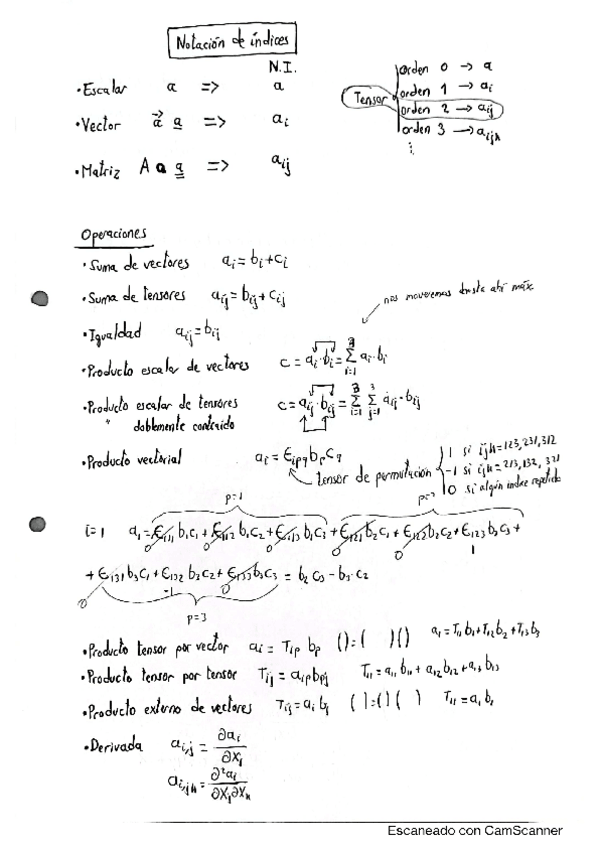 Notación de índices
N.I.
• Escalar a => a
• Vector a⃗ a̲ => aᵢ
• Matriz A a a̲̲ => aᵢⱼ
Tensor
orden 0 → a
orden 1 → aᵢ
orden 2 → aᵢⱼ
orden 3 → aᵢⱼₖ
⋮
Operaciones
• Suma de vectores aᵢ = bᵢ + cᵢ
• Suma de tensores aᵢⱼ = bᵢⱼ + cᵢⱼ
nos moveremos hasta ahí máx
• Igualdad aᵢⱼ = bᵢⱼ
• Producto escalar de vectores c = aᵢ·bᵢ = Σ_{i=1}^{3} aᵢ·bᵢ
• Producto escalar de tensores c = aᵢⱼ·bᵢⱼ = Σ_{i=1}^{3} Σ_{j=1}^{3} aᵢⱼ·bᵢⱼ
" doblemente contraído
• Producto vectorial aᵢ = ϵ_{ipq} b_p c_q
tensor de permutación
1 si ijk = 123, 231, 312
-1 si ijk = 213, 132, 321
0 si algún índice repetido
p=1 p=2
i=1 a₁ = ϵ₁₁₁ b₁c₁ + ϵ₁₁₂ b₁c₂ + ϵ₁₁₃ b₁c₃ + ϵ₁₂₁ b₂c₁ + ϵ₁₂₂ b₂c₂ + ϵ₁₂₃ b₂c₃ +
0 0 0 0 0 1
+ ϵ₁₃₁ b₃c₁ + ϵ₁₃₂ b₂c₂ + ϵ₁₃₃ b₃c₃ = b₂c₃ - b₃·c₂
0 -1 0
p=3
• Producto tensor por vector aᵢ = T_{ip} b_p ( ) = ( )( ) a₁ = T₁₁b₁ + T₁₂b₂ + T₁₃b₃
• Producto tensor por tensor Tᵢⱼ = a_{ip} b_{pj} T₁₁ = a₁₁b₁₁ + a₁₂b₁₂ + a₁₃b₁₃
• Producto externo de vectores Tᵢⱼ = aᵢ bⱼ ( ) = ( )( ) T₁₁ = a₁b₁
• Derivada aᵢ,ⱼ = ∂aᵢ/∂xⱼ
aᵢ,ⱼₖ = ∂²aᵢ/∂xⱼ∂xₖ
Escaneado con CamScanner